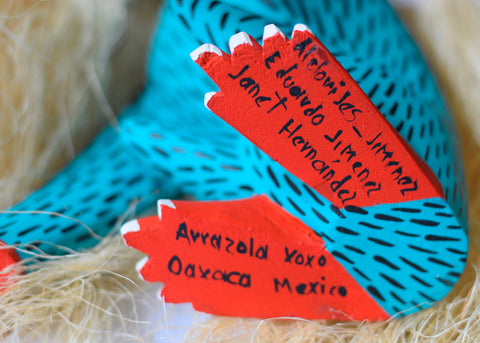 Jiménez
Eduardo Jimenez
Janet Hernández
Arrazola xoxo
Oaxaca Mexico